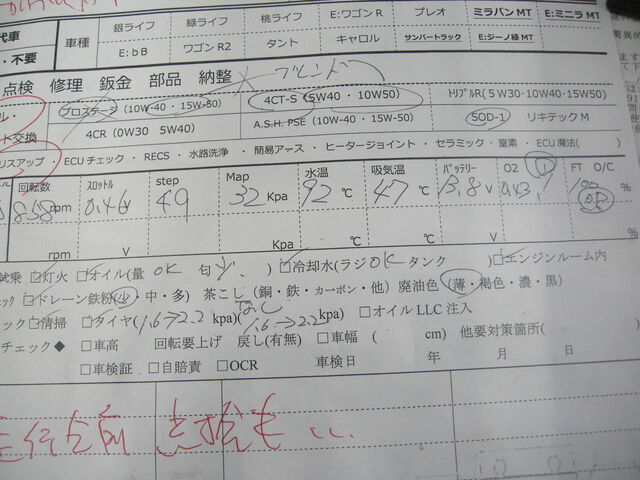 代車 車種 銀ライフ 緑ライフ 桃ライフ E:ワゴン R プレオ ミラバン MT E:ミニラ MT
・不要 E:ｂB ワゴン R2 タント キャロル サンバートラック E:ジーノ緑 MT
点検 修理 鈑金 部品 納整 ブレンド
プロステージ(10W-40 ・ 15W-50) 4CT-S(5W40 ・ 10W50) トリプルR(5W30･10W40･15W50)
ト交換 4CR (0W30 5W40) A.S.H. PSE (10W-40 ・ 15W-50) SOD-1 リキテック M
リスアップ ・ ECU チェック ・ RECS ・ 水路洗浄 ・ 簡易アース ・ ヒータージョイント ・ セラミック ・ 窒素 ・ ECU 魔法( )
回転数 スロットル step Map 水温 吸気温 バッテリー O2 ① FT O/C
838 rpm 0.46 V 49 32 Kpa 92 ℃ 47 ℃ 13.8 V 0.43 100 %
rpm V Kpa ℃ ℃ V %
試乗 □灯火 □オイル(量 OK 匂 少 ) □冷却水(ラジ OK タンク ) □エンジンルーム内
ェック □ドレーン鉄粉(少・中・多) 茶こし (鋼・鉄・カーボン・他) 廃油色 (薄・褐色・濃・黒)
なし
ック □清掃 □タイヤ(1.6→2.2 kpa)( 1.6→2.2 kpa) □オイル LLC 注入
チェック◆ □車高 回転要上げ 戻し(有無) □車幅 ( cm) 他要対策箇所( )
□車検証 □自賠責 □OCR 車検日 年 月 日
走行点前 点検も